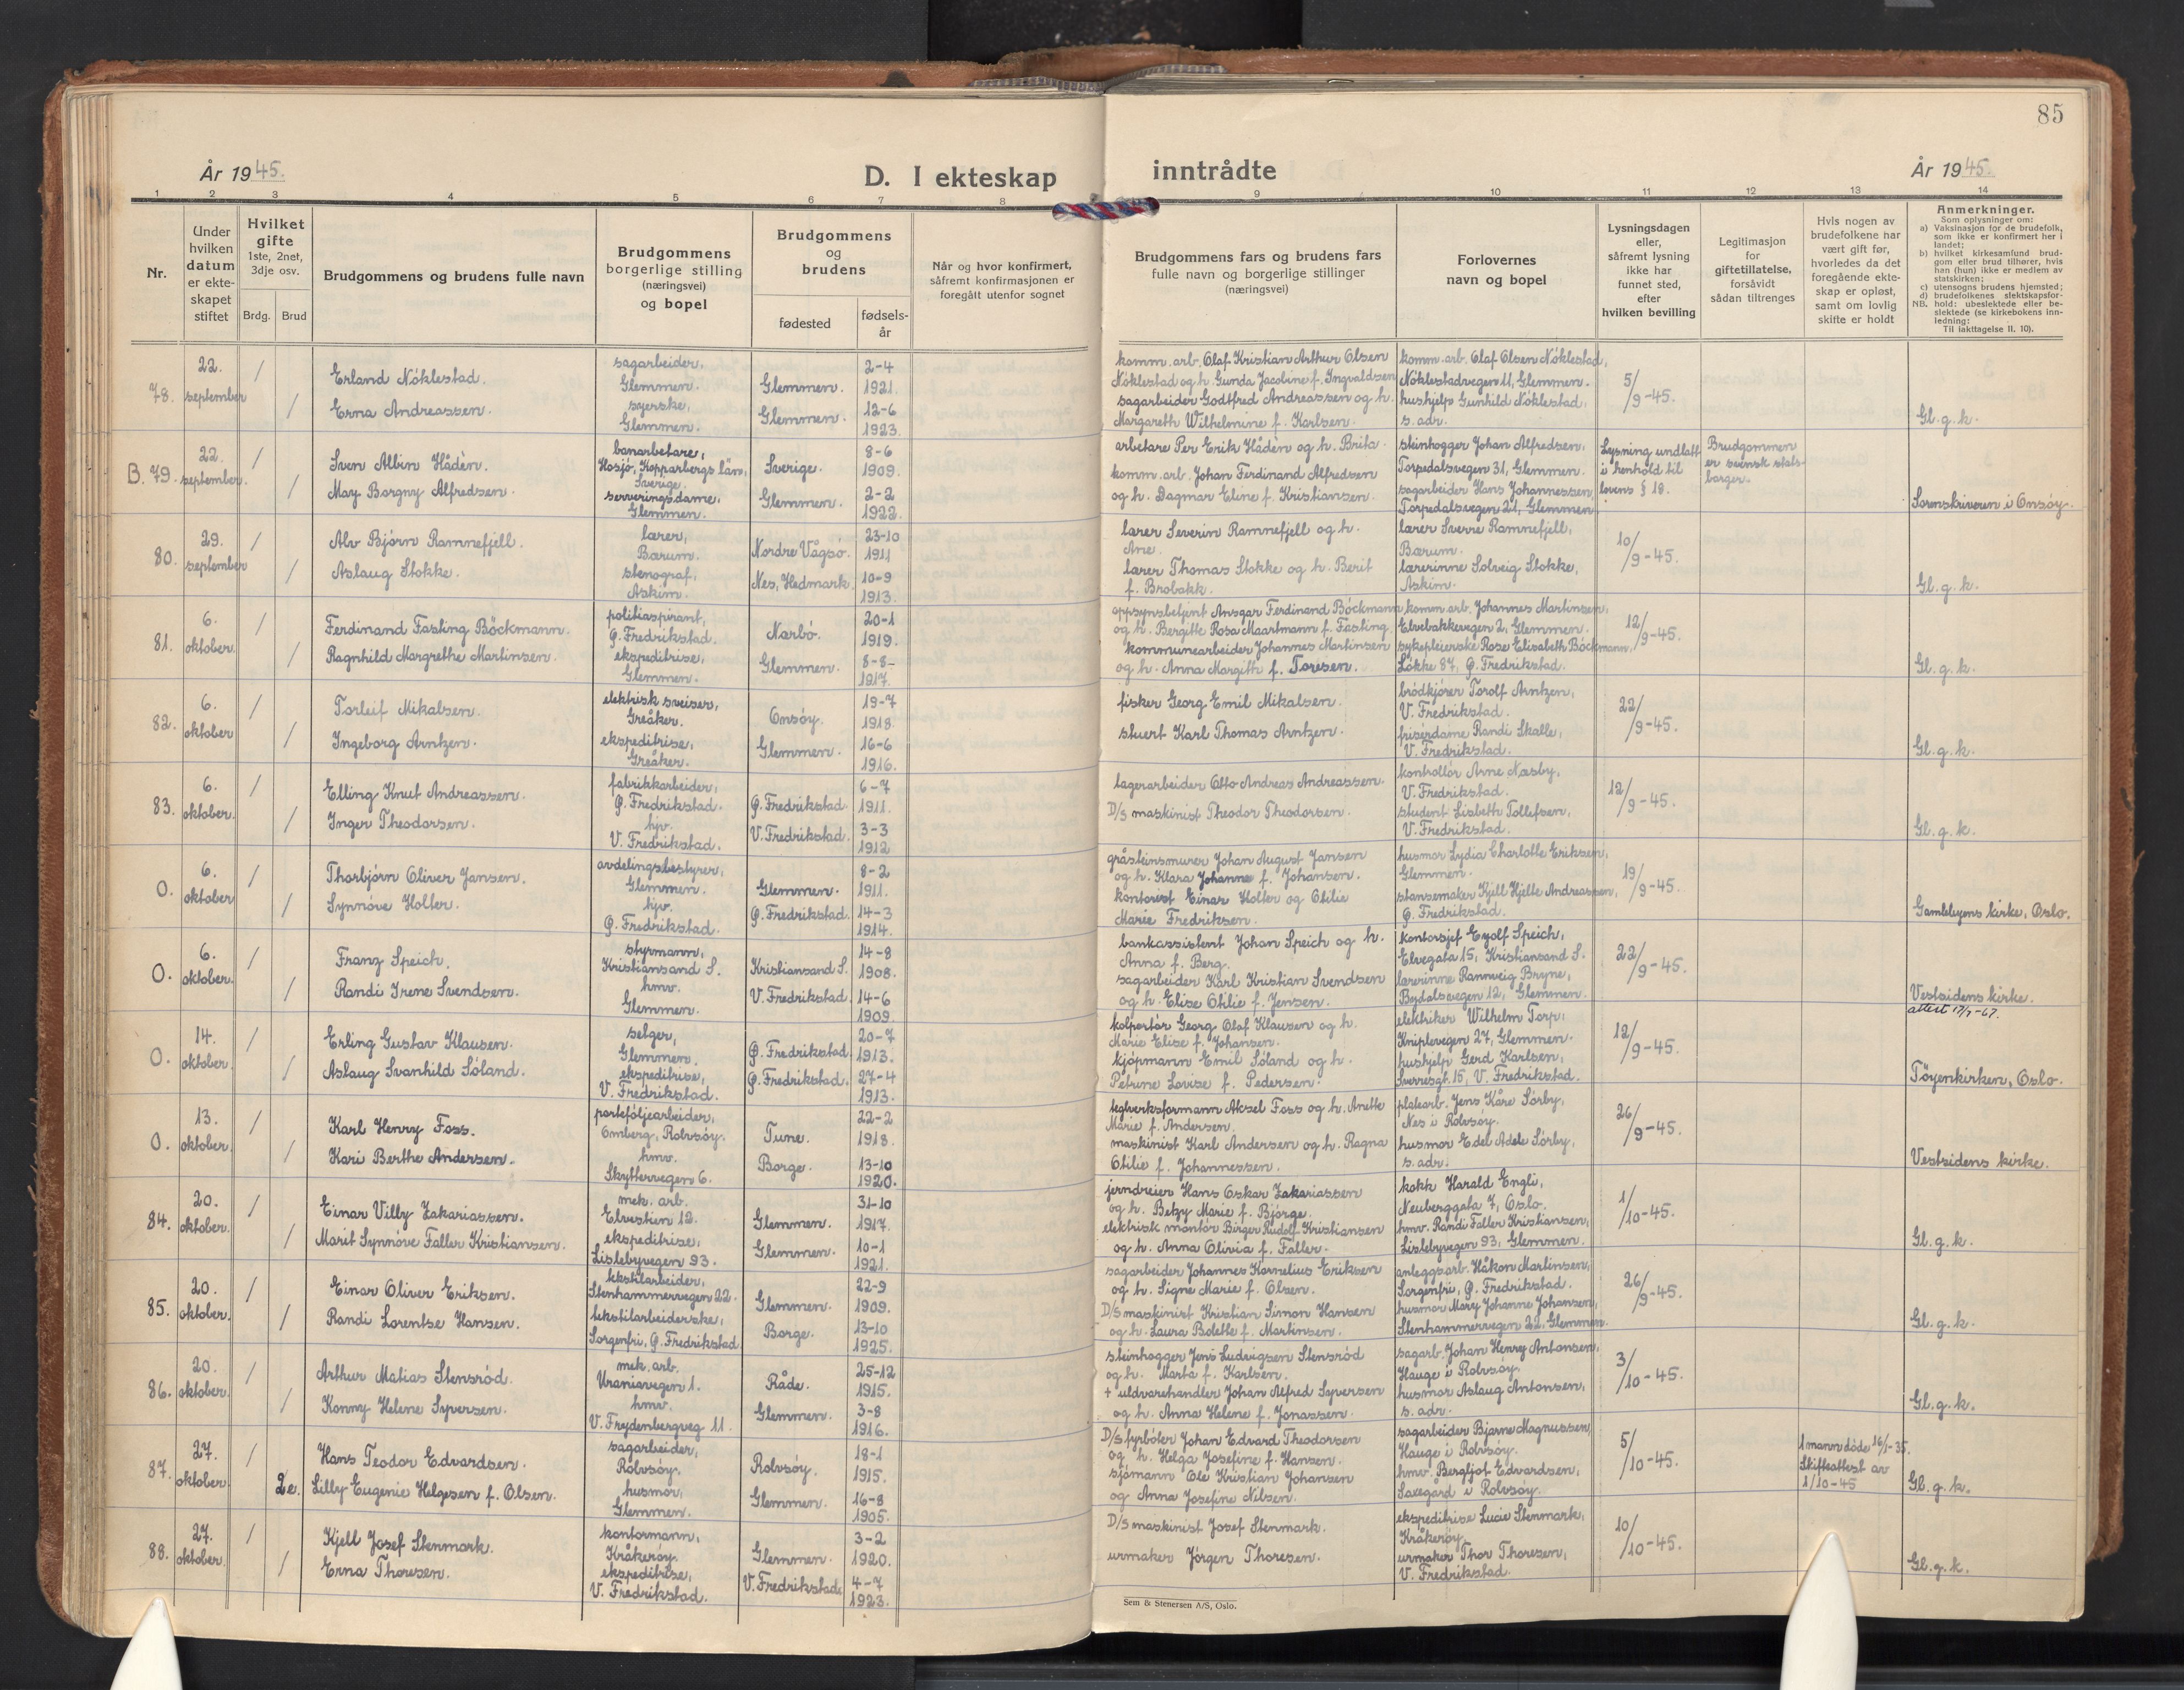 85
År 1945.
D. I ekteskap inntrådte
År 1945.
1 2 3 4 5 6 7 8 9 10 11 12 13 14
Nr.
Under hvilken datum er ekte-skapet stiftet
Hvilket gifte 1ste, 2net, 3dje osv.
Brdg. Brud
Brudgommens og brudens fulle navn
Brudgommens borgerlige stilling (næringsvei) og bopel
Brudgommens og brudens
fødested
fødsels-år
Når og hvor konfirmert, såfremt konfirmasjonen er foregått utenfor sognet
Brudgommens fars og brudens fars fulle navn og borgerlige stillinger (næringsvei)
Forlovernes navn og bopel
Lysningsdagen eller, såfremt lysning ikke har funnet sted, efter hvilken bevilling
Legitimasjon for giftetillatelse, forsåvidt sådan tiltrenges
Hvis nogen av brudefolkene har vært gift før, hvorledes da det foregående ekte-skap er opløst, samt om lovlig skifte er holdt
Anmerkninger.
Som oplysninger om:
a) Vaksinasjon for de brudefolk, som ikke er konfirmert her i landet;
b) hvilket kirkesamfund brud-gom eller brud tilhører, hvis han (hun) ikke er medlem av statskirken;
c) utensogns brudens hjemsted;
d) brudefolkenes slektskapsfor-
NB. hold: ubeslektede eller be-slektede (se kirkebokens inn-ledning:
Til iakttagelse II. 10).
78. 22. september 1 1
Erland Nöklestad.
Erna Andreassen.
sagarbeider, Glemmen.
syerske, Glemmen.
Glemmen. 2-4 1921.
Glemmen. 12-6 1923.
komm. arb. Olaf Kristian Arthur Olsen
Nöklestad og h. Gunda Jacobine f. Ingvaldsen
sagarbeider Godtfred Andreassen og h.
Margareth Wilhelmine f. Karlsen.
komm. arb. Olaf Olsen Nöklestad,
Nöklestadvegen 11, Glemmen.
hushjelp Gunhild Nöklestad,
s. adr.
5/9-45.
Gl. g. k.
B. 79. 22. september. 1 1
Sven Albin Hådèn.
May Borgny Alfredsen.
banarbetare,
Hosjö, Kopparbergs län,
Sverige.
serveringsdame,
Glemmen.
Sverige. 8-6 1909.
Glemmen. 2-2 1922.
arbetare Per Erik Hådèn og h. Brita.
komm. arb. Johan Ferdinand Alfredsen
og h. Dagmar Eline f. Kristiansen.
steinhogger Johan Alfredsen,
Torpedalsvegen 31, Glemmen.
sagarbeider Hans Johannessen,
Torpedalsvegen 21, Glemmen.
Lysning undlatt i henhold til lovens § 18.
Brudgommen er svensk stats-borger.
Sorenskriveren i Onsöy.
80. 29. september 1 1
Alv Björn Ramnefjell.
Aslaug Stokke.
lærer, Bærum.
stenograf, Askim.
Nordre Vågsö. 23-10 1911
Nes, Hedmark. 10-9 1913.
lærer Severin Ramnefjell og h.
Ane.
lærer Thomas Stokke og h. Berit
f. Brobakk.
lærer Sverre Ramnefjell,
Bærum.
lærerinne Solveig Stokke,
Askim.
10/9-45.
Gl. g. k.
81. 6. oktober. 1 1
Ferdinand Fasting Böckmann.
Ragnhild Margrethe Martinsen.
politiaspirant,
Ø. Fredrikstad.
ekspeditrise,
Glemmen.
Nærbö. 20-1 1919.
Glemmen. 8-8- 1917.
oppsynsbetjent Ansgar Ferdinand Böckmann
og h. Bergitte Rosa Maartmann f. Fasting.
kommunearbeider Johannes Martinsen
og h. Anna Margith f. Toresen.
komm. arb. Johannes Martinsen,
Elvebakkevegen 2, Glemmen.
sykepleierske Rose Elisabeth Böckmann,
Lökke 87, Ø. Fredrikstad.
12/9-45.
Gl. g. k.
82. 6. oktober 1 1
Torleif Mikalsen.
Ingeborg Arntzen.
elektrisk sveiser,
Greåker.
ekspeditrise,
Greåker.
Onsöy. 19-7 1918.
Glemmen. 16-6 1916.
fisker Georg Emil Mikalsen.
stuert Karl Thomas Arntzen.
brödkjörer Torolf Arntzen,
V. Fredrikstad.
frisérdame Randi Skalle,
V. Fredrikstad.
22/9-45.
Gl. g. k.
83. 6. oktober. 1 1
Elling Knut Andreassen.
Inger Theodorsen.
fabrikkarbeider,
Ø. Fredrikstad.
hjv.
V. Fredrikstad.
Ø. Fredrikstad. 6-7 1911.
V. Fredrikstad. 3-3 1912
lagerarbeider Otto Andreas Andreassen.
D/S maskinist Theodor Theodorsen.
kontrollör Arne Næsby.
V. Fredrikstad.
student Lisbeth Tollefsen,
V. Fredrikstad.
12/9-45.
Gl. g. k.
O. 6. oktober 1 1
Thorbjörn Oliver Jansen.
Synnöve Holter.
avdelingsbestyrer,
Glemmen.
hjv.
Ø. Fredrikstad.
Glemmen. 8-2 1911.
Ø. Fredrikstad. 14-3 1914.
gråsteinsmurer Johan August Jansen
og h. Klara Johanne f. Johansen.
kontorist Einar Holter og Otilie
Marie Fredriksen.
husmor Lydia Charlotte Eriksen,
Glemmen.
stansemaker Kjell Hjelle Andreassen,
Ø. Fredrikstad.
19/9-45.
Gamlebyens kirke, Oslo.
O. 6. oktober. 1 1
Franz Speich.
Randi Irene Svendsen.
styrmann,
Kristiansand S.
hmv.
Glemmen.
Kristiansand S. 14-8 1908.
V. Fredrikstad. 14-6 1909.
bankassistent Johan Speich og h.
Anna f. Berg.
sagarbeider Karl Kristian Svendsen
og h. Elise Otilie f. Jensen.
kontorsjef Eyolf Speich,
Elvegata 15, Kristiansand S.
lærerinne Rannveig Bryne,
Bydalsvegen 12, Glemmen.
22/9-45.
Vestsidens kirke.
attest 17/7-67.
O. 14. oktober. 1 1
Erling Gustav Klausen.
Aslaug Svanhild Söland.
selger,
Glemmen.
ekspeditrise,
V. Fredrikstad.
Ø. Fredrikstad. 20-7 1913.
Ø. Fredrikstad. 27-4 1913.
kolportör Georg Olaf Klausen og h.
Marie Elise f. Johansen.
kjöpmann Emil Söland og h.
Petrine Lovise f. Pedersen.
elektriker Wilhelm Torp,
Kniplevegen 27, Glemmen.
hushjelp Gerd Karlsen,
Sverresgt. 15, V. Fredrikstad.
12/9-45.
Töyenkirken, Oslo.
O. 13. oktober. 1 1
Karl Henry Foss.
Kari Berthe Andersen.
porteföljearbeider,
Omberg, Rolvsöy.
hmv.
Skyttervegen 6.
Tune. 22-2 1918.
Borge. 13-10 1920.
teglverksformann Aksel Foss og h. Anette
Marie f. Andersen.
maskinist Karl Andersen og h. Ragna
Otilie f. Johannessen.
platearb. Jens Kåre Sörby,
Nes i Rolvsöy.
husmor Edel Adele Sörby,
s. adr.
26/9-45.
Vestsidens kirke.
84. 20. oktober. 1 1
Einar Villy Zakariassen.
Marit Synnöve Faller Kristiansen.
mek. arb.
Elvestien 12.
ekspeditrise,
Lislebyvegen 93.
Glemmen. 31-10 1917.
Glemmen. 10-1 1921.
jerndreier Hans Oskar Zakariassen
og h. Betzy Marie f. Björge.
elektrisk montör Birger Rudolf Kristiansen
og h. Anna Olivia f. Faller.
kokk Harald Engli,
Neuberggata 7, Oslo.
hmv. Randi Faller Kristiansen,
Lislebyvegen 93, Glemmen.
1/10-45.
Gl. g. k.
85. 20. oktober. 1 1
Einar Oliver Eriksen.
Randi Lorentse Hansen.
tekstilarbeider,
Stenhammervegen 22.
tekstilarbeiderske,
Sorgenfri, Ø. Fredrikstad
Glemmen. 22-9 1909.
Borge. 13-10 1925.
sagarbeider Johannes Kornelius Eriksen
og h. Signe Marie f. Olsen.
D/S maskinist Kristian Simon Hansen
og h. Laura Bolette f. Martinsen.
anleggsarb. Håkon Martinsen,
Sorgenfri, Ø. Fredrikstad.
husmor Mary Johanne Johansen,
Stenhammervegen 22, Glemmen.
26/9-45.
Gl. g. k.
86. 20. oktober. 1 1
Arthur Matias Stensröd.
Konny Helene Syversen.
mek. arb.
Uraniavegen 1.
hmv.
V. Frydenbergveg 11.
Råde. 25-12 1915.
Glemmen. 3-8 1916.
steinhogger Jens Ludvigsen Stensröd
og h. Marta f. Karlsen.
+ uldvarehandler Johan Alfred Syversen
og h. Anna Helene f. Jonassen.
sagarb. Johan Henry Antonsen,
Hauge i Rolvsöy.
husmor Aslaug Antonsen,
s. adr.
3/10-45.
Gl. g. k.
87. 27. oktober. 1 2e.
Hans Teodor Edvardsen.
Lilly Eugenie Helgesen f. Olsen.
sagarbeider,
Rolvsöy.
husmor,
Glemmen.
Rolvsöy. 18-1 1915.
Glemmen. 16-8 1905.
D/S fyrböter Johan Edvard Theodorsen
og h. Helga Josefine f. Hansen.
sjömann Ole Kristian Johansen
og Anna Josefine Nilsen.
sagarbeider Bjarne Magnussen,
Hauge i Rolvsöy.
hmv. Bergljot Edvardsen,
Saxegård i Rolvsöy.
5/10-45.
1 mann döde 16/1-35.
Skifteattest av
1/10-45
Gl. g. k.
88. 27. oktober. 1 1
Kjell Josef Stenmark.
Erna Thoresen.
kontormann,
Kråkeröy.
ekspeditrise,
V. Fredrikstad.
Glemmen. 3-2 1920.
V. Fredrikstad. 4-7 1923.
D/S maskinist Josef Stenmark.
urmaker Jörgen Thoresen.
ekspeditrise Lucie Stenmark,
Kråkeröy.
urmaker Thor Thoresen,
V. Fredrikstad.
10/10-45.
Gl. g. k.
Sem & Stenersen A/S, Oslo.